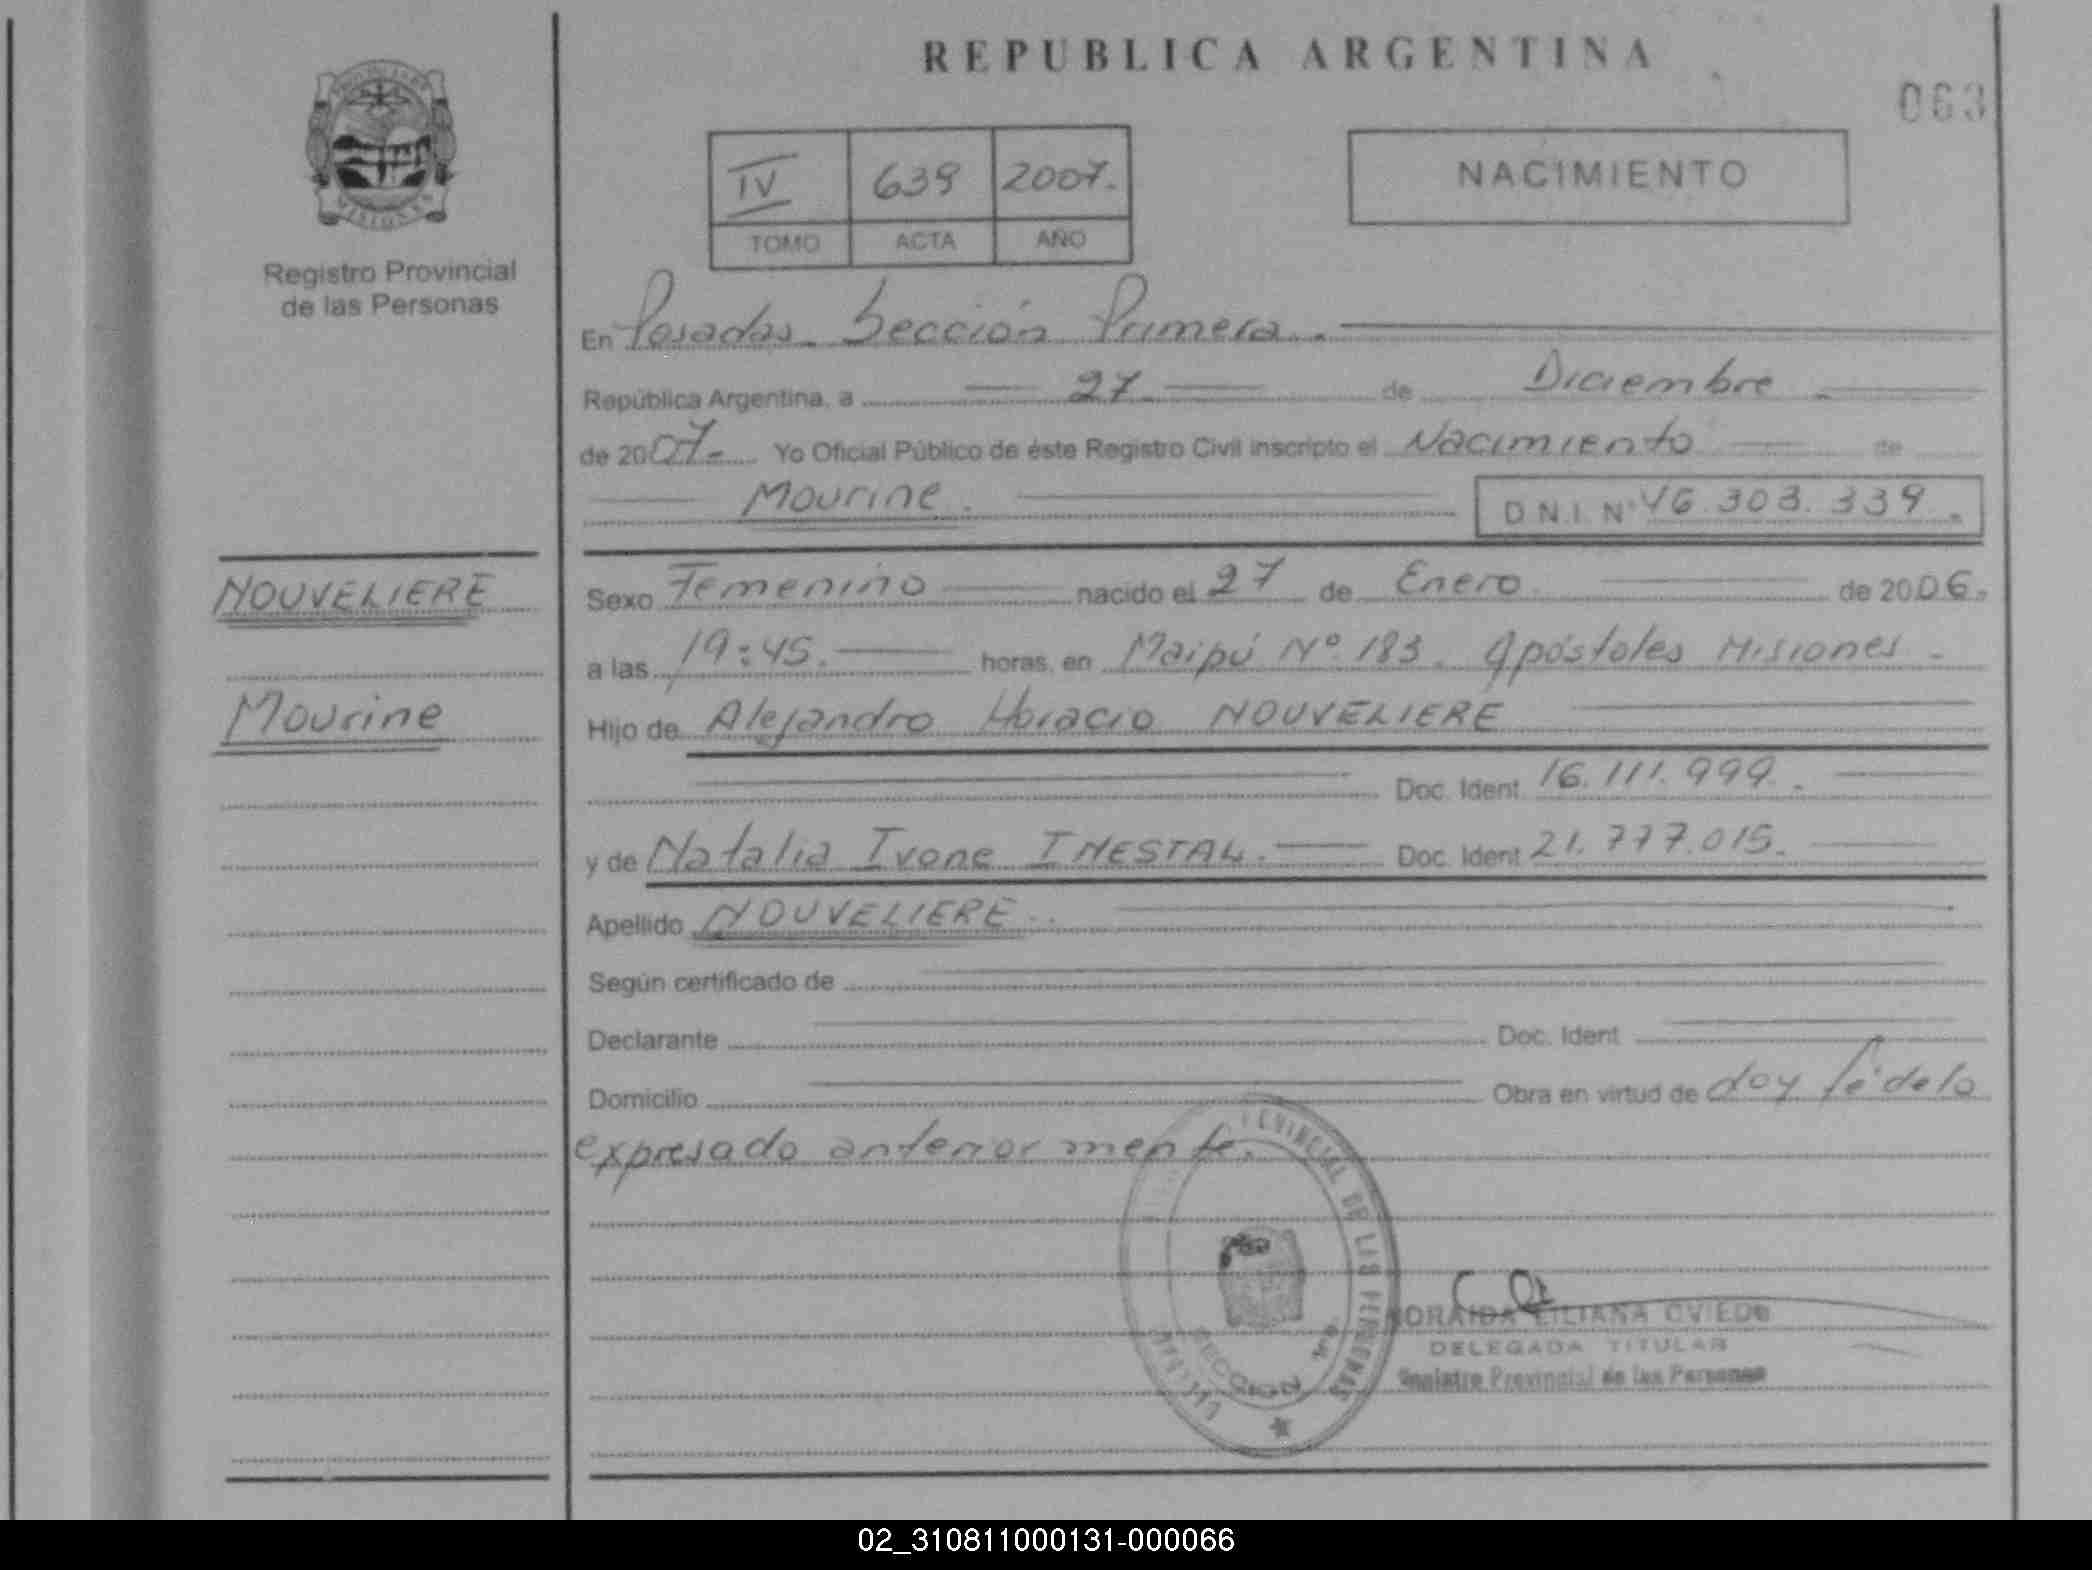 REPUBLICA ARGENTINA
063
IV 639 2007.
TOMO ACTA AÑO
NACIMIENTO
MISIONES
Registro Provincial
de las Personas
En Posadas Sección Primera.
República Argentina, a 27 de Diciembre
de 2007. Yo Oficial Público de éste Registro Civil inscripto el Nacimiento de
Mourine. D.N.I. Nº 46.303.339.
NOUVELIERE
Mourine
Sexo Femenino nacido el 27 de Enero de 2006.
a las 19:45. horas, en Maipú Nº 183. Apóstoles Misiones.
Hijo de Alejandro Horacio NOUVELIERE
Doc. Ident. 16.111.999.
y de Natalia Ivone INESTAL. Doc. Ident. 21.777.015.
Apellido NOUVELIERE.
Según certificado de
Declarante Doc. Ident.
Domicilio Obra en virtud de doy fé de lo
expresado anteriormente.
PROVINCIAL DE LAS PERSONAS
SECCION
LILIANA OVIEDO
DELEGADA TITULAR
Registro Provincial de las Personas
02_310811000131-000066